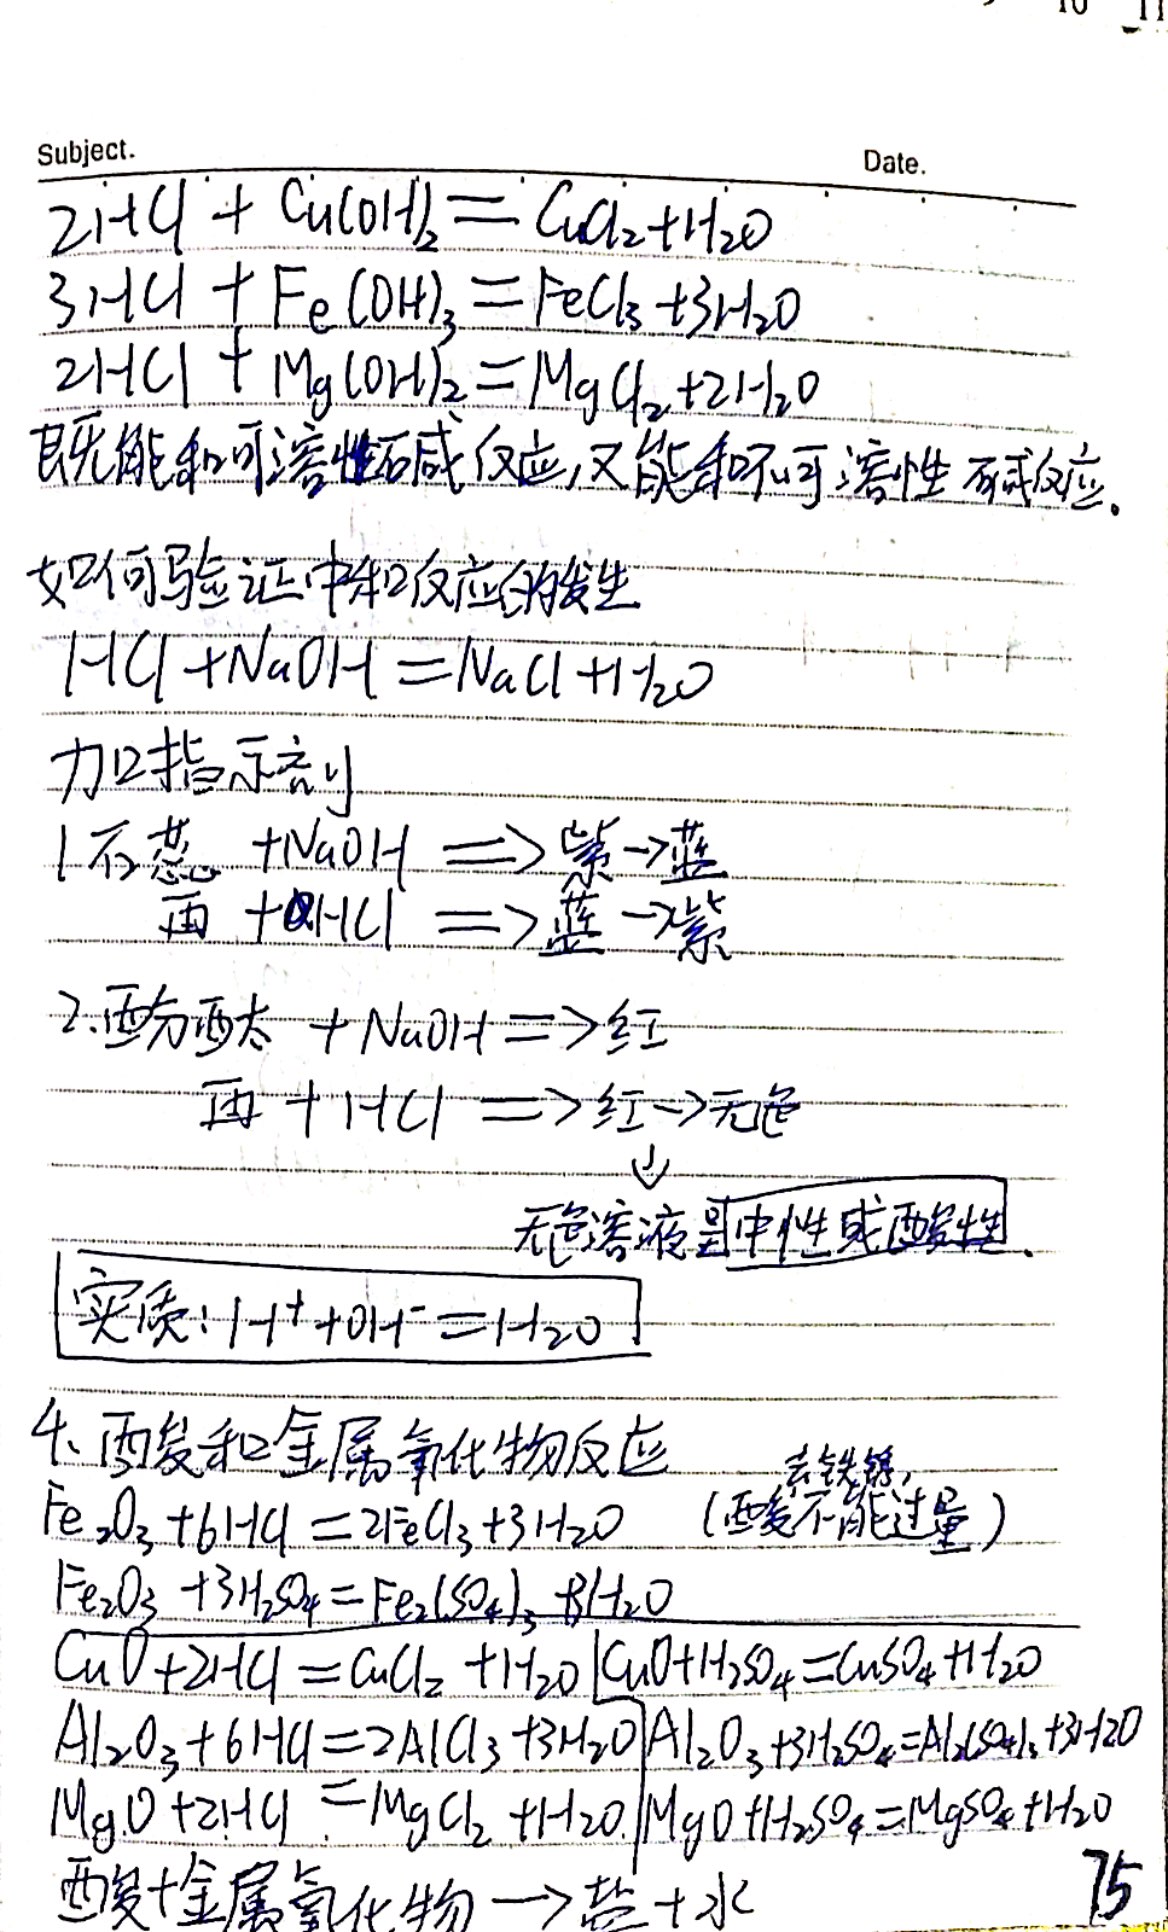 10 11
Subject. Date.
2HCl + Cu(OH)₂ = CuCl₂ + H₂O
3HCl + Fe(OH)₃ = FeCl₃ + 3H₂O
2HCl + Mg(OH)₂ = MgCl₂ + 2H₂O
既能和可溶性碱反应,又能和不可溶性碱反应。
如何验证中和反应的发生
HCl + NaOH = NaCl + H₂O
加指示剂
1 石蕊 + NaOH => 紫→蓝
再 + HCl => 蓝→紫
2. 酚酞 + NaOH => 红
再 + HCl => 红→无色
↓
无色溶液呈中性或酸性.
实质: H⁺ + OH⁻ = H₂O
4、酸和金属氧化物反应
去铁锈,
Fe₂O₃ + 6HCl = 2FeCl₃ + 3H₂O (酸不能过量)
Fe₂O₃ + 3H₂SO₄ = Fe₂(SO₄)₃ + 3H₂O
CuO + 2HCl = CuCl₂ + H₂O | CuO + H₂SO₄ = CuSO₄ + H₂O
Al₂O₃ + 6HCl = 2AlCl₃ + 3H₂O | Al₂O₃ + 3H₂SO₄ = Al₂(SO₄)₃ + 3H₂O
MgO + 2HCl = MgCl₂ + H₂O. | MgO + H₂SO₄ = MgSO₄ + H₂O
酸+金属氧化物 → 盐+水
75